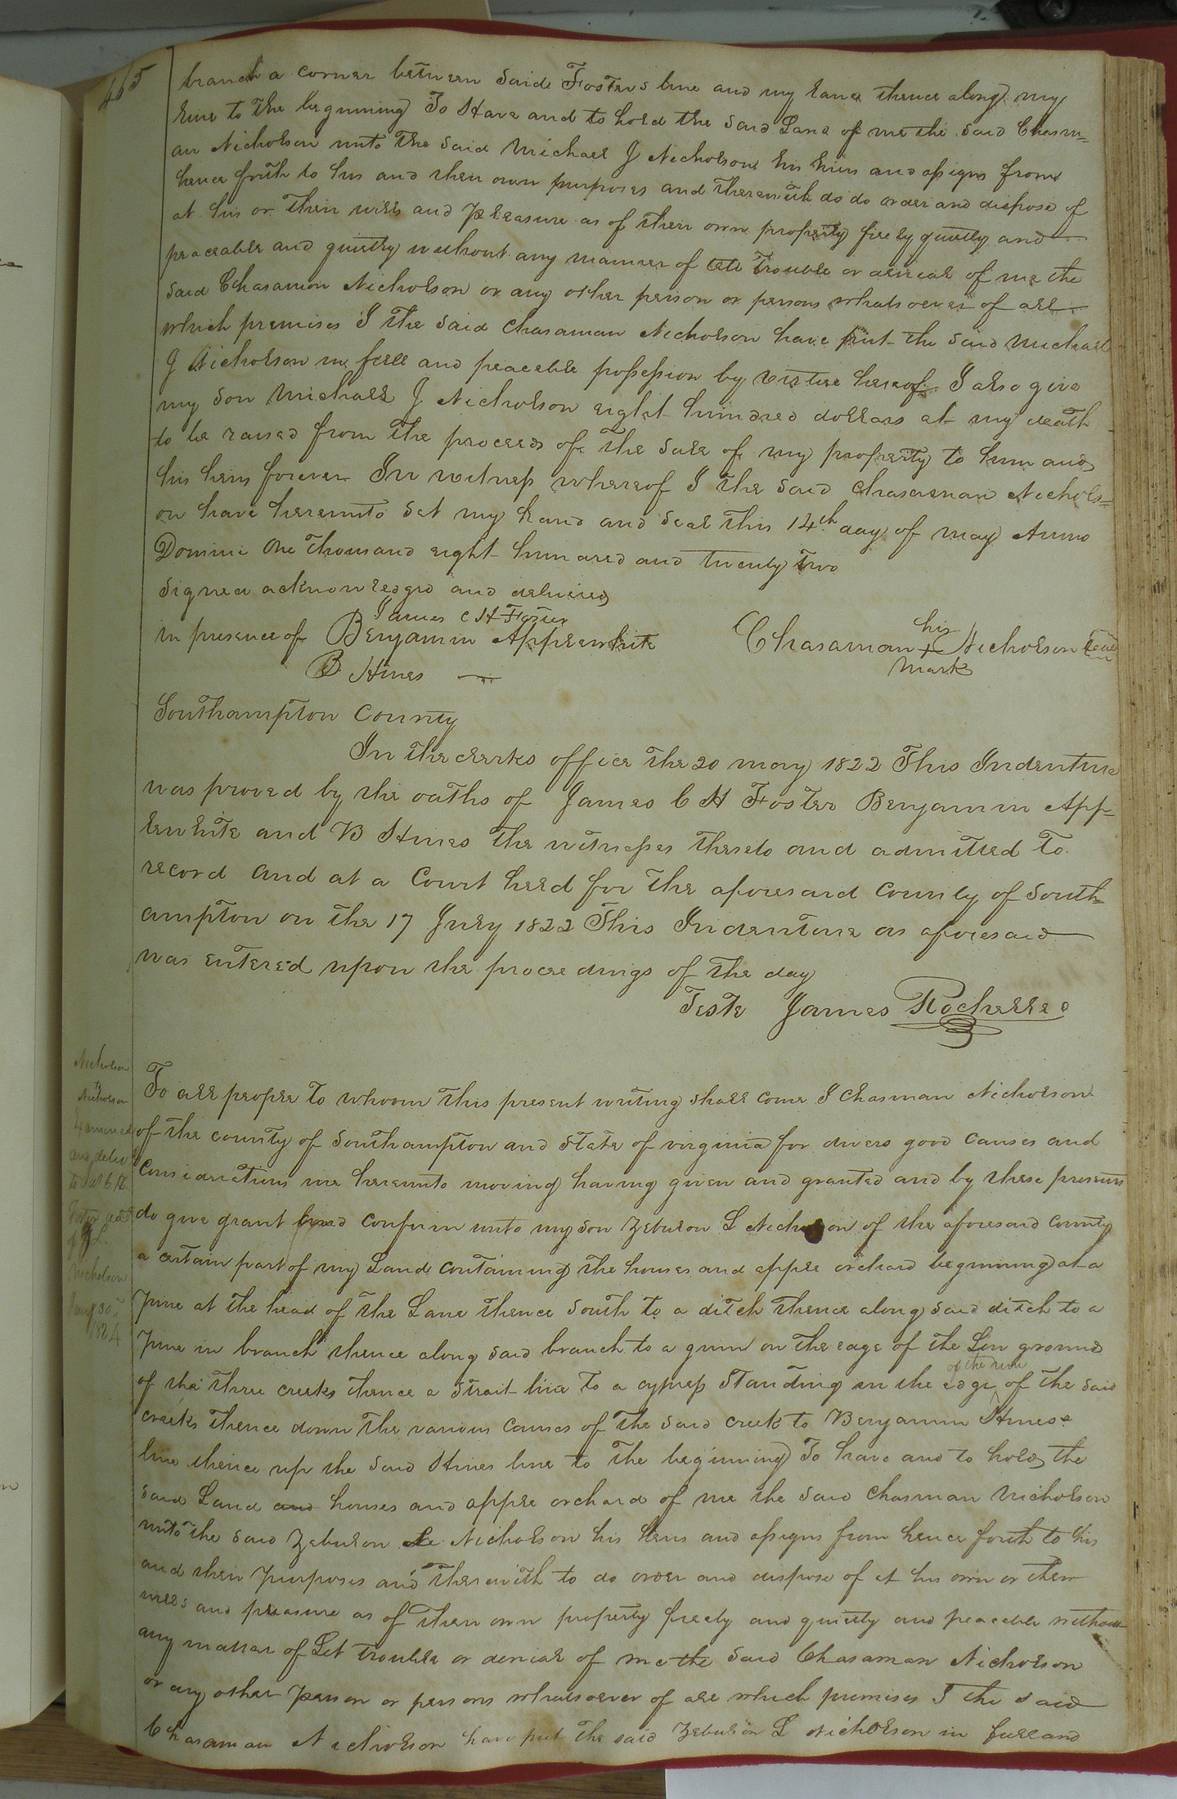 465
branch a corner between said Fosters line and my Land thence along my
line to the beginning To Have and to hold the said Land of me the said Chasm-
an Nicholson unto the said Michael J Nicholson his heirs and assigns from
hence forth to his and their own purposes and therewith do do order and dispose of
at his or their will and pleasure as of their own property freely quietly and
peaceable and quietly without any manner of let trouble or denial of me the
said Chasamon Nicholson or any other person or persons whatsoever of all
which premises I the said Chasaman Nicholson have put the said Michael
J Nicholson in full and peaceble possession by virtue hereof I also give
my son Michael J Nicholson eight hundred dollars at my death
to be raised from the proceeds of the sale of my property to him and
his heirs forever In witness whereof I the said Chasaman Nichols-
on have hereunto set my hand and seal this 14th day of may Anno
Domini One thousand eight hundred and twenty two
Signed acknowledged and delivered
James C H Foster
in presence of Benjamin Applewhite
B Hines
Chasaman his + mark Nicholson seal
Southampton County
In the clerks office the 20 may 1822 This Indenture
was proved by the oaths of James C H Foster Benjamin App-
lewhite and B Hines the witnesses thereto and admitted to
record And at a Court held for the aforesaid County of South-
ampton on the 17 July 1822 This Indenture as aforesaid
was entered upon the proceedings of the day
Teste James Rochelle
Nicholson
to
Nicholson
Examined
and deliv
Nicholson
1824
To all people to whom this present writing shall come I Chasman Nicholson
of the county of Southampton and State of virginia for divers good causes and
considerations me hereunto moving having given and granted and by these presents
do give grant and confirm unto my son Zebulon L Nicholson of the aforesaid County
a certain part of my Land containing the houses and apple orchard beginning at a
pine at the head of the Lane thence South to a ditch thence along said ditch to a
pine in branch thence along said branch to a gum on the edge of the Low ground
of the three creeks thence a strait line to a cypress standing in the edge of the rune of the said
creeks thence down the various causes of the said creek to Benjamin Hines
line thence up the said Hines line to the beginning To have and to hold the
said Land and houses and apple orchard of me the said Chasman Nicholson
unto the said Zebulon L Nicholson his heirs and assigns from hence forth to his
and their purposes and therewith to do order and dispose of at his own or their
wills and pleasure as of their own property freely and quietly and peaceble without
any matter of Let trouble or denial of me the said Chasaman Nicholson
or any other person or persons whatsoever of all which premises I the said
Chasaman Nicholson have put the said Zebulon L Nicholson in full and